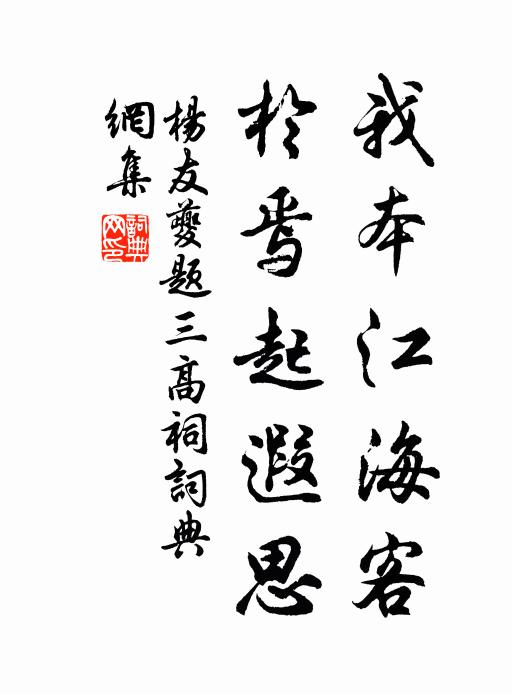 我本江海客
於焉起遐思
楊友夔題三高祠詞典
網集
詞典網印